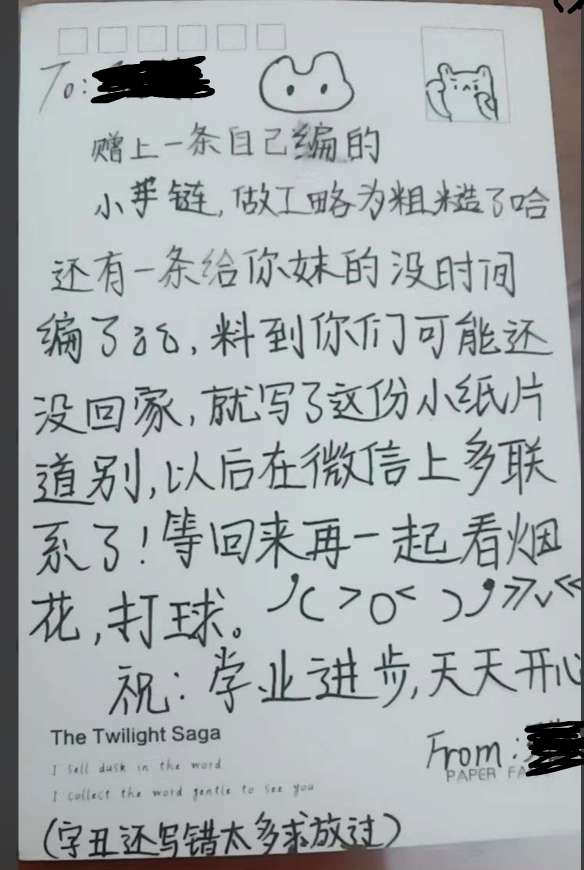 To:
赠上一条自己编的
小手链,做工略为粗糙了哈
还有一条给你妹的没时间
编了,料到你们可能还
没回家,就写了这份小纸片
道别,以后在微信上多联
系了!等回来再一起看烟
花,打球。
祝:学业进步,天天开心
The Twilight Saga
From:
I sell dusk in the word
PAPER FA
I collect the word gentle to see you
(字丑还写错太多求放过)